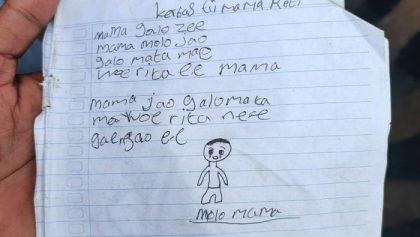 kertas ti mama Reti
mama galo zee
mama molo jao
galo mata mae
woe rita ee mama
mama jao galo mata
ma woe rita nee
molo mama